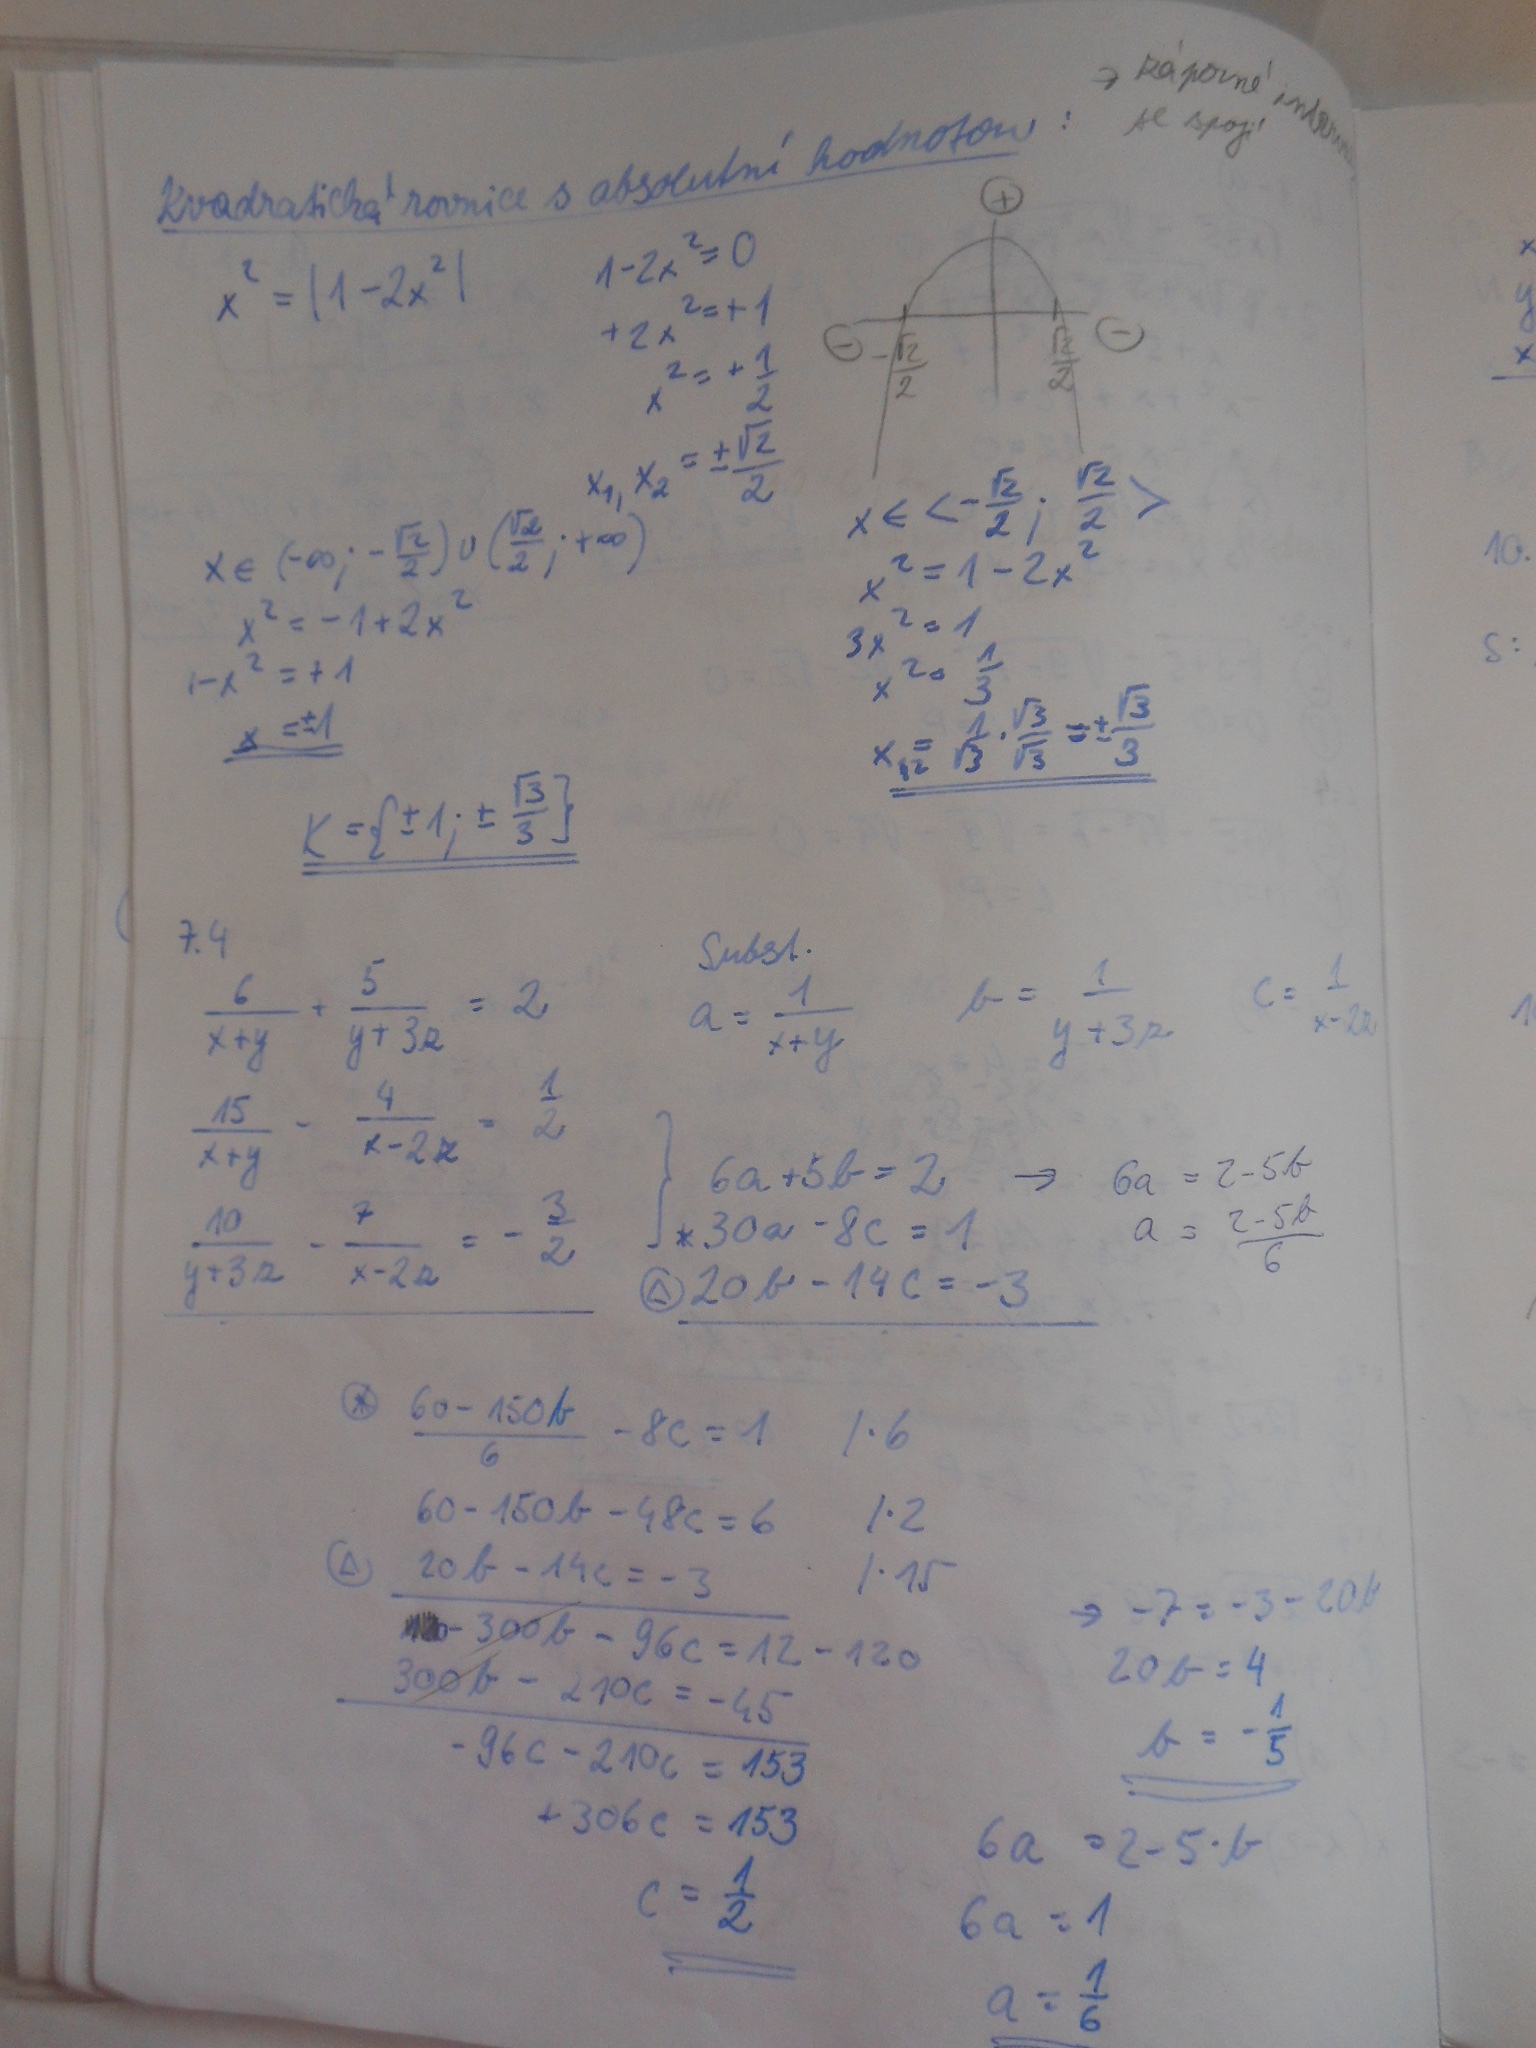 → záporné
se spojí
Kvadratická rovnice s absolutní hodnotou :
x² = |1-2x²|
1-2x² = 0
+2x² = +1
x² = + 1/2
x₁, x₂ = ± √2/2
⊕
⊖ -√2/2 √2/2 ⊖
x ∈ (-∞; -√2/2) ∪ (√2/2; +∞)
x² = -1+2x²
-x² = +1
x = ±1
x ∈ <-√2/2; √2/2>
x² = 1-2x²
3x² = 1
x² = 1/3
x₁,₂ = 1/√3 · √3/√3 = ± √3/3
K = {±1; ± √3/3}
7.4
6/(x+y) + 5/(y+3z) = 2
15/(x+y) - 4/(x-2z) = 1/2
10/(y+3z) - 7/(x-2z) = - 3/2
Subst.
a = 1/(x+y) b = 1/(y+3z) c = 1/(x-2z)
6a+5b = 2 → 6a = 2-5b
* 30a - 8c = 1 a = (2-5b)/6
△ 20b - 14c = -3
⊛ (60-150b)/6 - 8c = 1 /·6
60-150b - 48c = 6 /·2
△ 20b - 14c = -3 /·15
-300b - 96c = 12 - 120
300b - 210c = -45
-96c - 210c = 153
+306c = 153
c = 1/2
→ -7 = -3 - 20b
20b = 4
b = - 1/5
6a = 2-5·b
6a = 1
a = 1/6
x
y
x
10.
S: